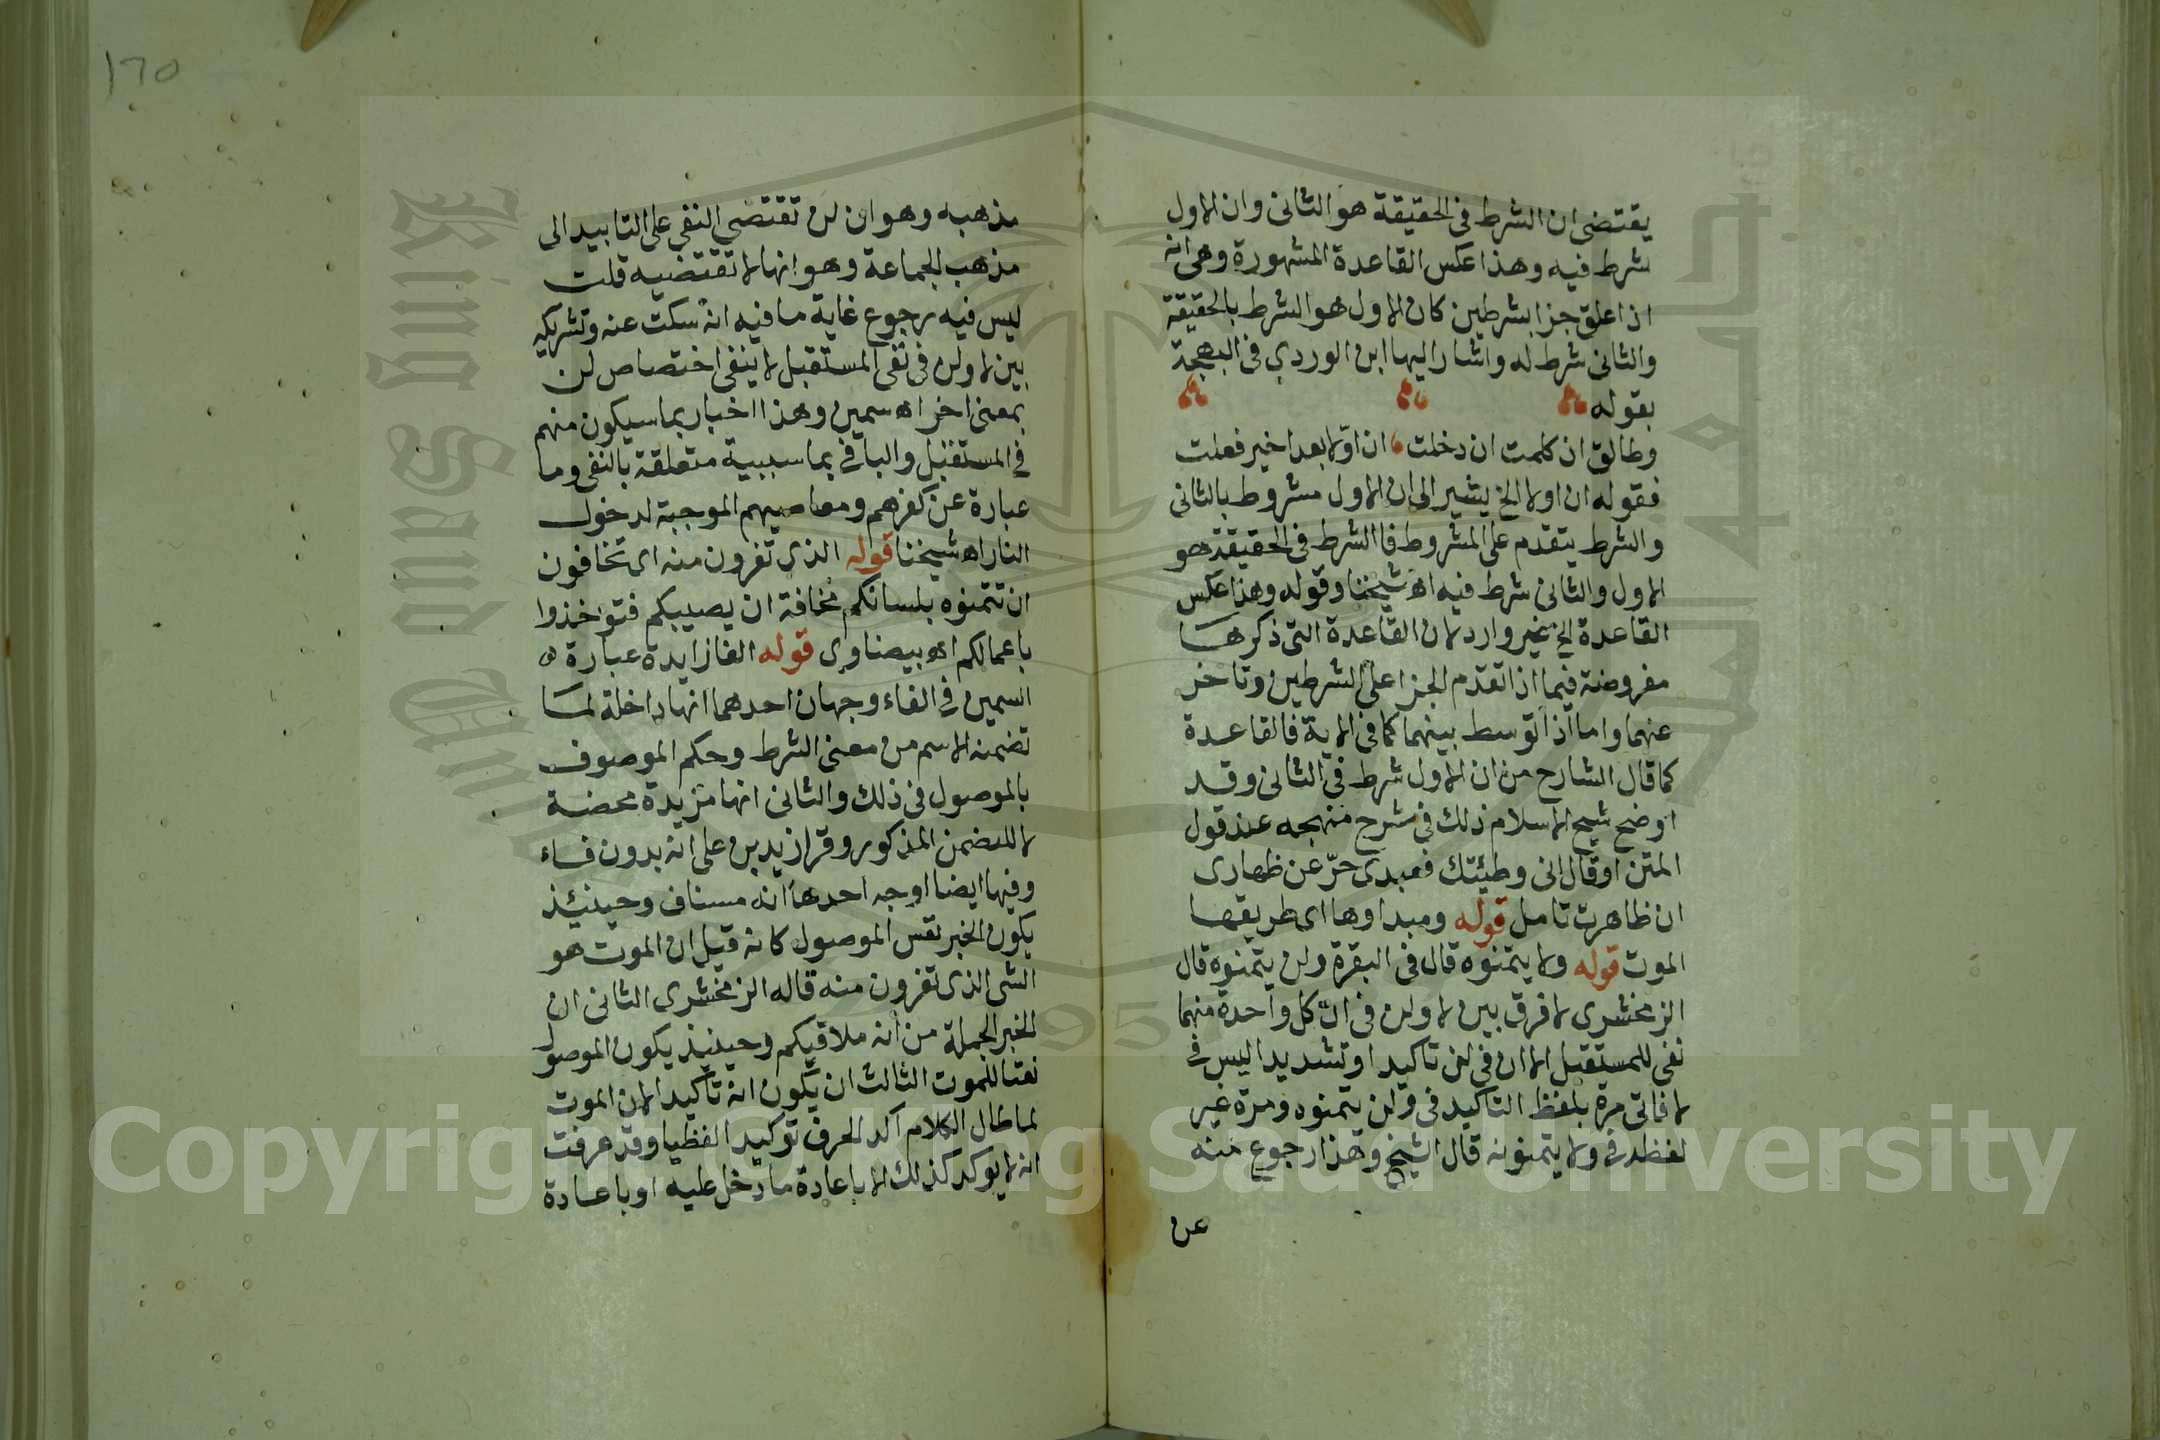 يقتضى ان الشرط فى الحقيقة هو الثانى وان الاول
شرط فيه وهذا عكس القاعدة المشهورة وهى انه
اذا علق جزا بشرطين كان الاول هو الشرط بالحقيقة
والثانى شرط له واشار اليها ابن الوردي فى البهجة
بقوله
وطالق ان كلمت ان دخلت ان اولا بعد اخير فعلت
فقوله ان اولا الخ يشير الى ان الاول مشروط بالثانى
والشرط يتقدم على المشروط فا الشرط فى الحقيقة هو
الاول والثانى شرط فيه اه شيخنا وقوله وهذا عكس
القاعدة الخ غير وارد لان القاعدة التى ذكرها
مفروضة فيما اذا تقدم الجزا على الشرطين وتاخر
عنهما واما اذا توسط بينهما كما فى الاية فالقاعدة
كما قال الشارح من ان الاول شرط فى الثانى وقد
اوضح شيخ الاسلام ذلك فى شرح منهجه عند قول
المتن او قال انى وطيئتك فعبدى حرّ عن ظهارى
ان ظاهرت تامل قوله ومبداوها اى طريقها
الموت قوله ولا يتمنوه قال فى البقرة ولن يتمنوه قال
الزمخشرى لا فرق بين لا ولن فى انّ كل واحدة منهما
نفى للمستقبل الا ان فى لن تاكيدا وتشديدا ليس فى
لا فاتى مرة بلفظ التاكيد فى ولن يتمنوه ومرة غير
لفظه فى ولا يتمنونه قال الشيخ وهذا رجوع منه
عن
١٦٥
مذهبه وهو ان لن تقتضى النفى على التابيد الى
مذهب الجماعة وهو انها لا تقتضيه قلت
ليس فيه رجوع غاية ما فيه انه سكت عنه وتشريكه
بين لا ولن فى نفى المستقبل لا ينفى اختصاص لن
بمعنى اخر اه سمين وهذا اخبار بما سيكون منهم
فى المستقبل والبا فى بما سببية متعلقة بالنفى وما
عبارة عن كفرهم ومعاصيهم الموجبة لدخول
النار اه شيخنا قوله الذى تفرون منه اى تخافون
ان تتمنوه بلسانكم مخافة ان يصيبكم فتواخذوا
باعمالكم اه بيضاوى قوله الفا زايدة عبارة
السمين فى الفاء وجهان احدهما انها داخلة لما
تضمنه الاسم من معنى الشرط وحكم الموصوف
بالموصول فى ذلك والثانى انها مزيدة محضة
لا للتضمن المذكور وقرا زيد بن على انه بدون فاء
وفيها ايضا اوجه احدها انه مستاف وحينئذ
يكون الخبر نفس الموصول كانه قيل ان الموت هو
الشى الذى تفرون منه قاله الزمخشرى الثانى ان
الخبر الجملة من انه ملاقيكم وحينيذ يكون الموصول
نعتا للموت الثالث ان يكون انه تاكيدا لان الموت
لما طال الكلام اكد الحرف توكيدا لفظيا وقد عرفت
انه لا يوكد كذلك الا باعادة ما دخل عليه او باعادة
Copyright © King Saud University